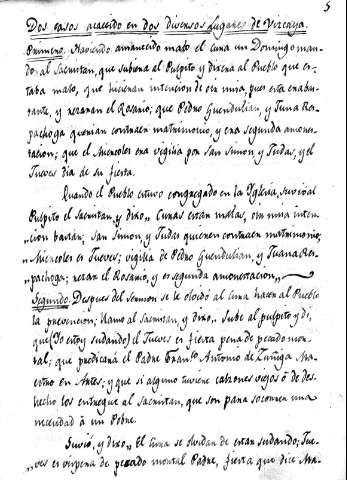 5
Dos casos acaecido en dos diversos Lugares de Vizcaya.
Primero. Haviendo amanecido malo el Cura un Domingo man-
dó al Sacristan, que subiera al Pulpito y dixera al Pueblo que es-
taba malo, que hicieran intencion de oir misa pues esta enabu-
rante, y rezaran el Rosario; que Pedro Guendulian, y Juana Res-
pachoga querian contraer matrimonio, y era segunda amones-
tacion; que el Miercoles era vigilia por san Simon y Judas, y el
Jueves dia de su fiesta.
Quando el Pueblo estuvo congregado en la Iglesia, suvió al
Pulpito el Sacristan, y dixo,, Curas estan malos, oir misa inten-
,,cion bastan; san Simon, y Judas quieren contraer matrimonio;
,,Miercoles es Jueves; vigilia de Pedro Guendulian, y Juana Res-
,,pachoga; rezar el Rosario, y es segunda amonestacion,,
Segundo. Despues del Sermon se le olvidó al Cura hacer al Pueblo
la prevencion; llamó al Sacristan, y dixo,, Sube al pulpito y di,
que (Yo estoy sudando) el Jueves es fiesta pena de pecado mor-
tal; que predicará el Padre Franco. Antonio de Zuñiga Ma-
estro en Artes; y que si alguno tuviere calzones viejos ó de des-
hecho los entregue al Sacristan, que son para socorrer una
necesidad á un Pobre.
Suvió, y dixo,, El Cura se olvidan de estar sudando; Jue-
,,ves es virpena de pecado mortal Padre, fiesta que dice Ma-